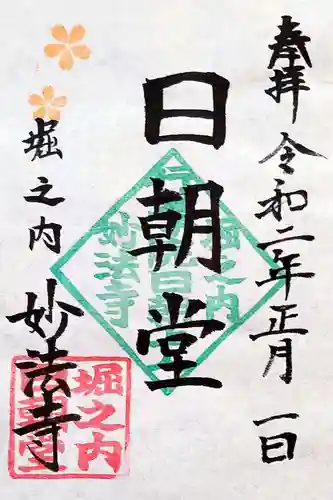 奉拝 令和二年正月 一日
日朝堂
堀之内
妙法寺
堀之内
妙法寺
堀之内
日朝堂